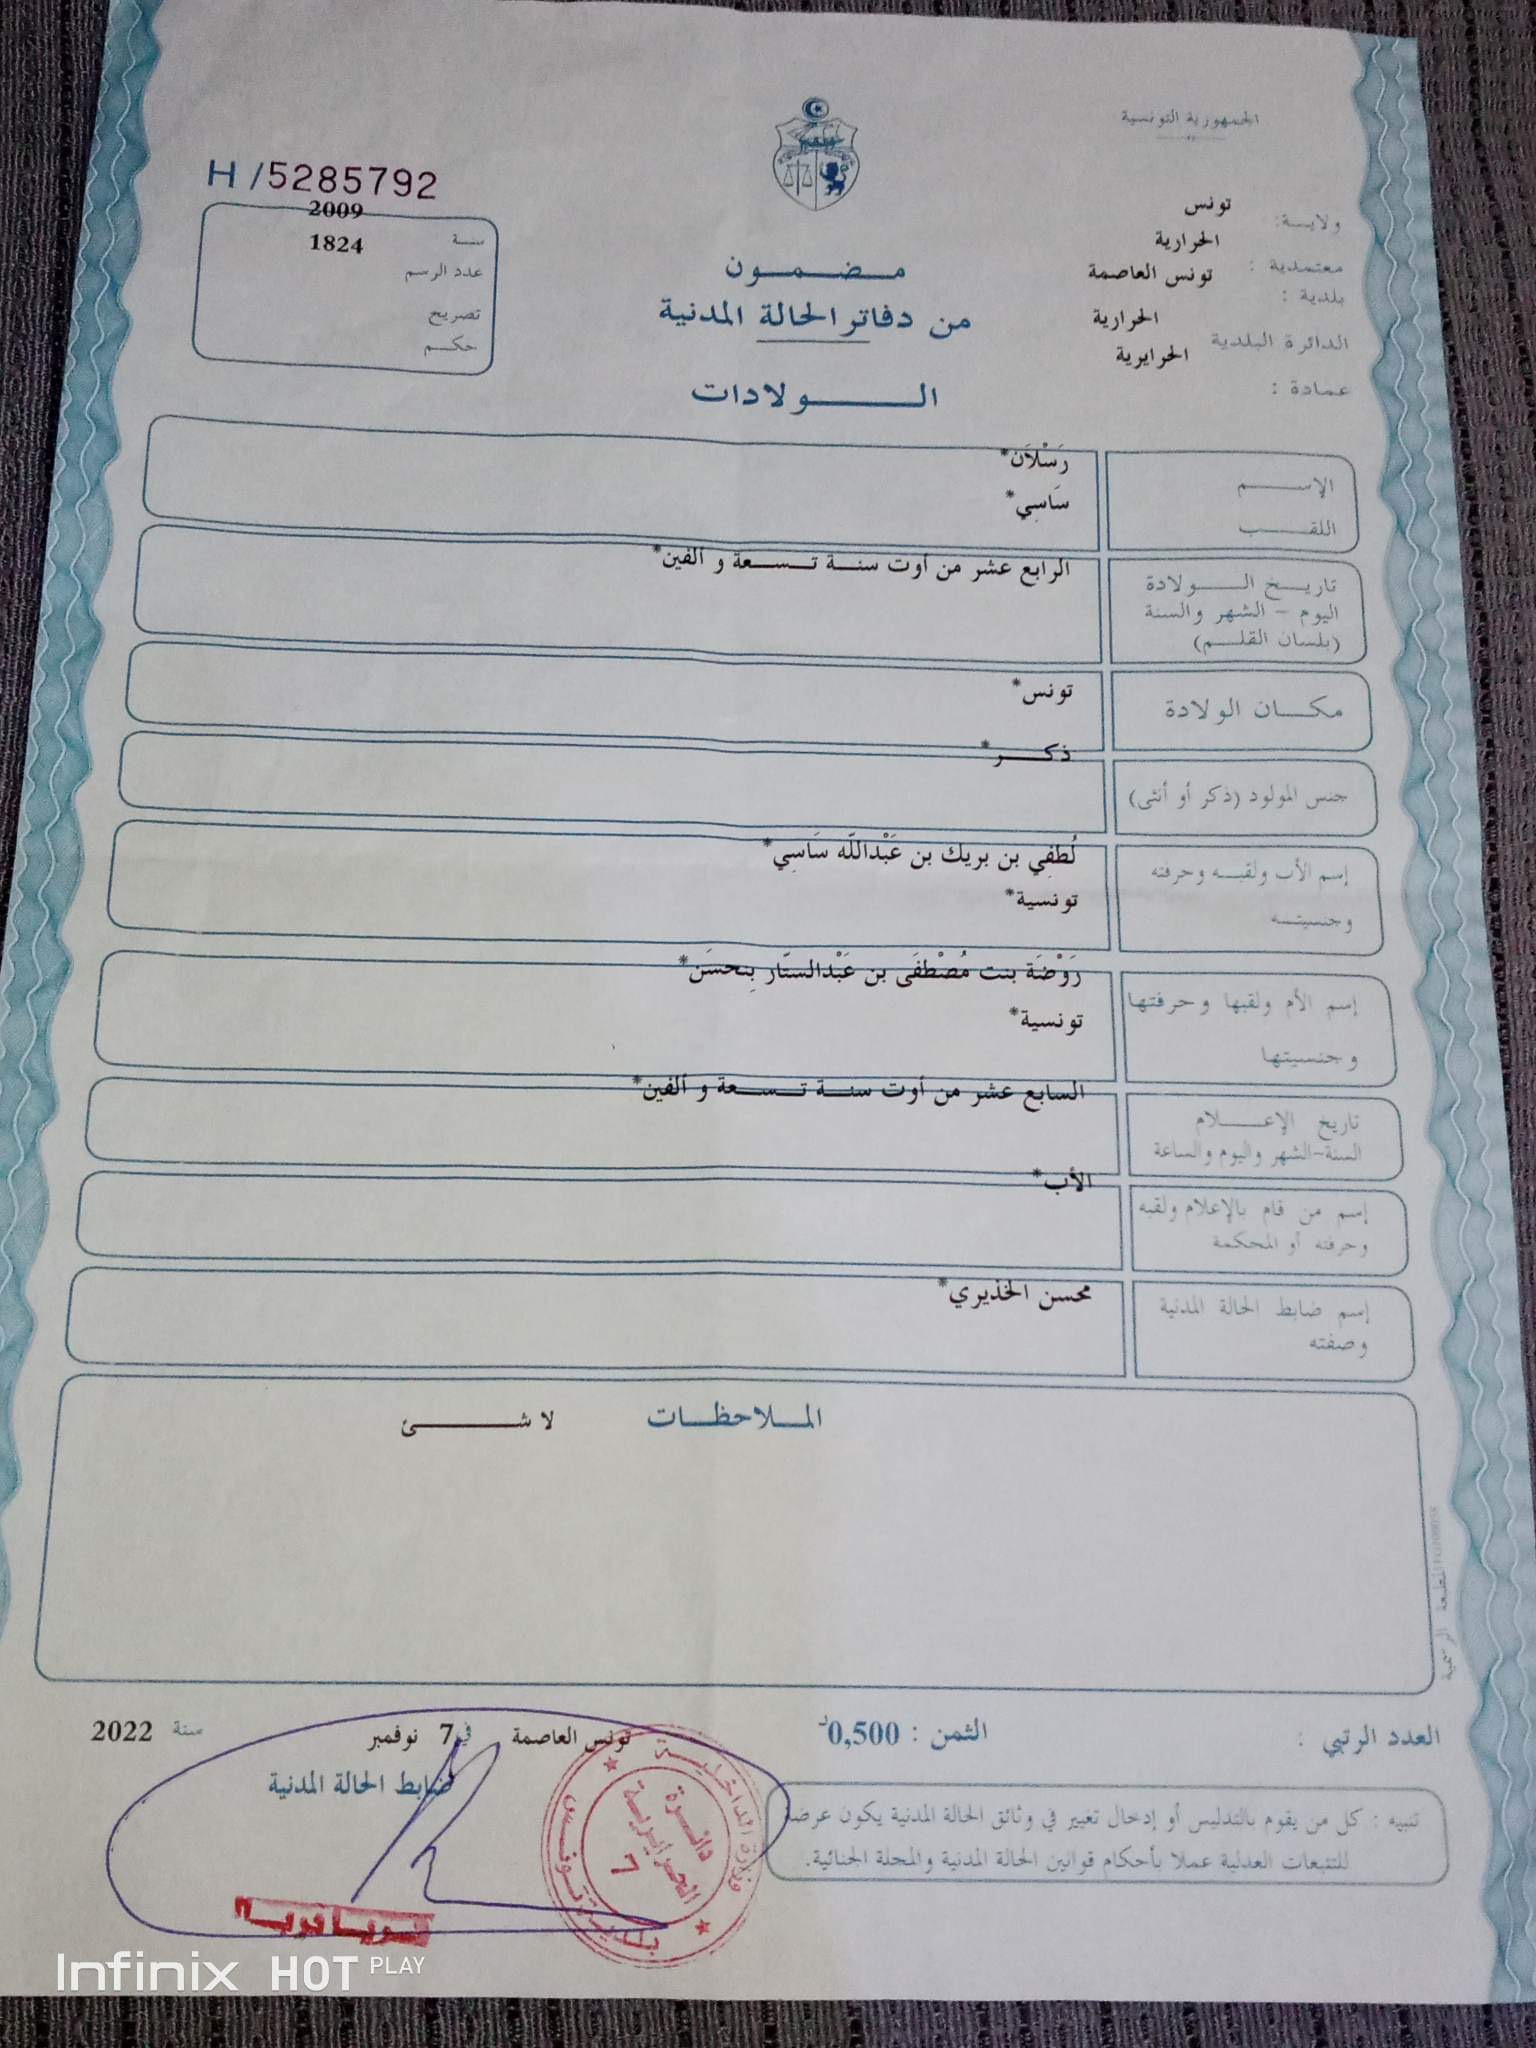 الجمهورية التونسية
H/5285792
ولايــة: تونس
معتمدية : الحرارية
بلدية : تونس العاصمة
الدائرة البلدية الحرارية
عمادة : الحرايرية
سنة 2009
عدد الرسم 1824
تصريح
حكم
مضمون
من دفاتر الحالة المدنية
الولادات
الإسم رَسْلاَن*
اللقب سَاسِي*
تاريخ الولادة
اليوم - الشهر والسنة
(بلسان القلم)
الرابع عشر من أوت سنة تسعة و ألفين*
مكان الولادة تونس*
جنس المولود (ذكر أو أنثى) ذكر*
إسم الأب ولقبه وحرفته
وجنسيته
لُطفِي بن بريك بن عَبْداللّه سَاسِي*
تونسية*
إسم الأم ولقبها وحرفتها
وجنسيتها
رَوْضَة بنت مُصْطفَى بن عَبْدالستّار بِنحسَن*
تونسية*
تاريخ الإعلام
السنة-الشهر واليوم والساعة
السابع عشر من أوت سنة تسعة و ألفين*
إسم من قام بالإعلام ولقبه
وحرفته أو المحكمة
الأب*
إسم ضابط الحالة المدنية
وصفته
محسن الخذيري*
الملاحظات لا شئ
المطبعة الرسمية
العدد الرتبي :
الثمن : 0,500د
تونس العاصمة في 7 نوفمبر سنة 2022
ضابط الحالة المدنية
تنبيه : كل من يقوم بالتدليس أو إدخال تغيير في وثائق الحالة المدنية يكون عرضة
للتتبعات العدلية عملا بأحكام قوانين الحالة المدنية والمجلة الجنائية.
وزارة الداخلية
بلدية تونس
دائرة
الحرايرية
7
Infinix HOT PLAY